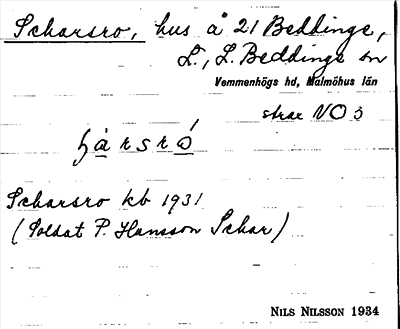 Scharsro, hus å 21 Beddinge,
L., L. Beddinge sn
Vemmenhögs hd, Malmöhus län
strax NO 3
ʃársró
Scharsro kb 1931
(Soldat P. Hansson Schar)
NILS NILSSON 1934